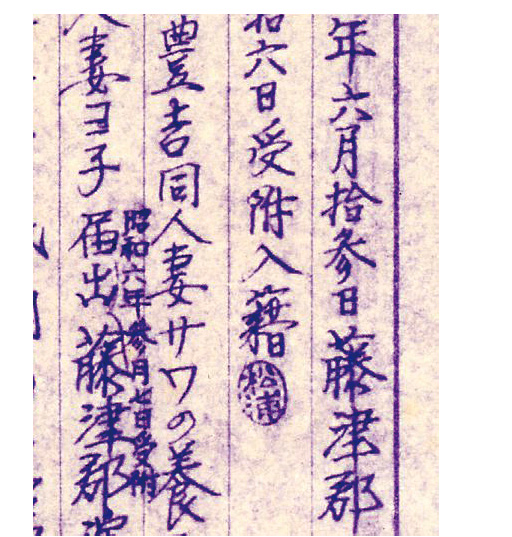 年六月拾参日藤津郡
和六日受附入籍
松浦
豊吉同人妻サワの養
昭和六年参月七日受附
人妻ヨ子届出藤津郡